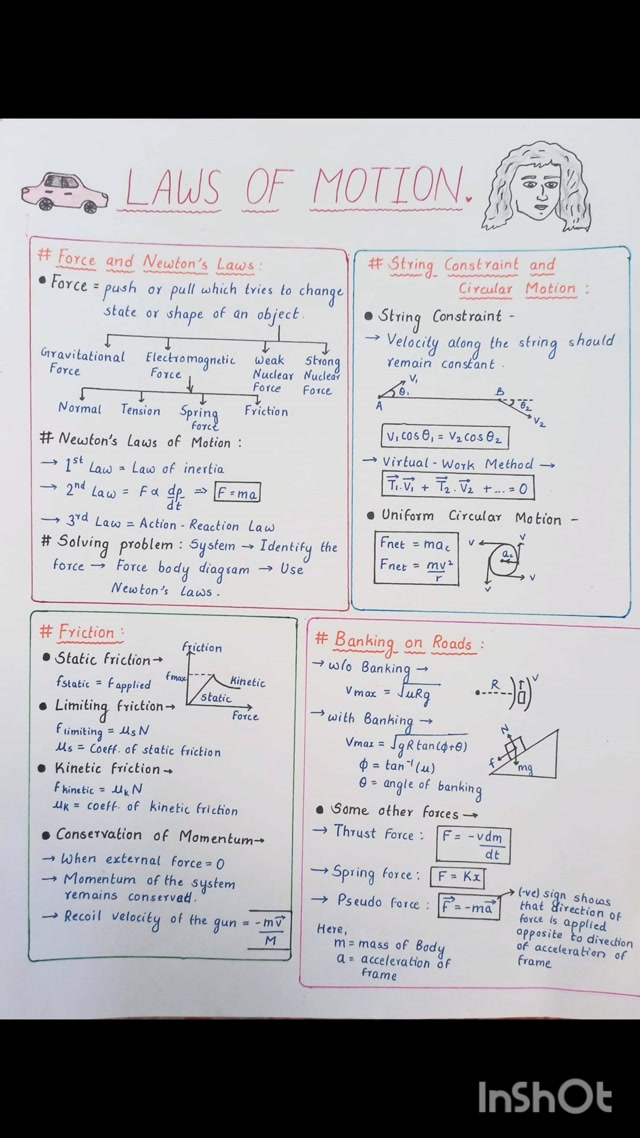 LAWS OF MOTION.
# Force and Newton's Laws :
• Force = push or pull which tries to change
state or shape of an object.
Gravitational Force
Electromagnetic Force
Weak Nuclear Force
Strong Nuclear Force
Normal
Tension
Spring force
Friction
# Newton's Laws of Motion :
→ 1st Law = Law of inertia
→ 2nd Law = F ∝ dp/dt ⇒ F = ma
→ 3rd Law = Action - Reaction Law
# Solving problem : System → Identify the
force → Force body diagram → Use
Newton's Laws.
# String Constraint and
Circular Motion :
• String Constraint -
→ Velocity along the string should
remain constant.
V₁
θ₁
A
B
θ₂
V₂
V₁cosθ₁ = V₂cosθ₂
→ Virtual - Work Method →
T⃗₁.V⃗₁ + T⃗₂.V⃗₂ + .... = 0
• Uniform Circular Motion -
Fnet = mac
Fnet = mv²/r
ac
v
v
v
v
# Friction :
• Static friction →
fstatic = fapplied
• Limiting friction →
flimiting = μsN
μs = Coeff. of static friction
• Kinetic friction →
fkinetic = μkN
μk = coeff. of kinetic friction
friction
fmax
Kinetic
static
Force
• Conservation of Momentum →
→ When external force = 0
→ Momentum of the system
remains conserved.
→ Recoil velocity of the gun = -mv⃗/M
# Banking on Roads :
→ w/o Banking →
Vmax = √μRg
R
V
→ with Banking →
Vmax = √gRtan(ϕ+θ)
ϕ = tan⁻¹(μ)
θ = angle of banking
N
f
mg
• Some other forces →
→ Thrust force : F = -vdm/dt
→ Spring force : F = Kx
→ Pseudo force : F⃗ = -ma⃗
(-ve) sign shows
that direction of
force is applied
opposite to direction
of acceleration of
frame
Here,
m = mass of Body
a = acceleration of
frame
InShOt